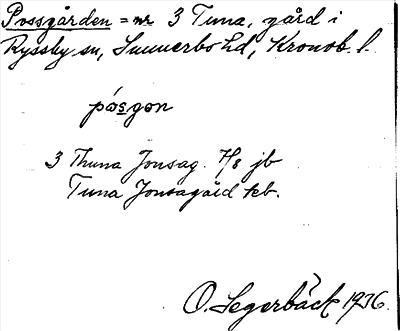 Possgården = nr 3 Tuna, gård i
Ryssby sn, Sunnerbo hd, Kronob. l.
pósgon
3 Thuna Jonsag. 7/8 jb
Tuna Jonsagård kb.
O. Segerbäck 1936.